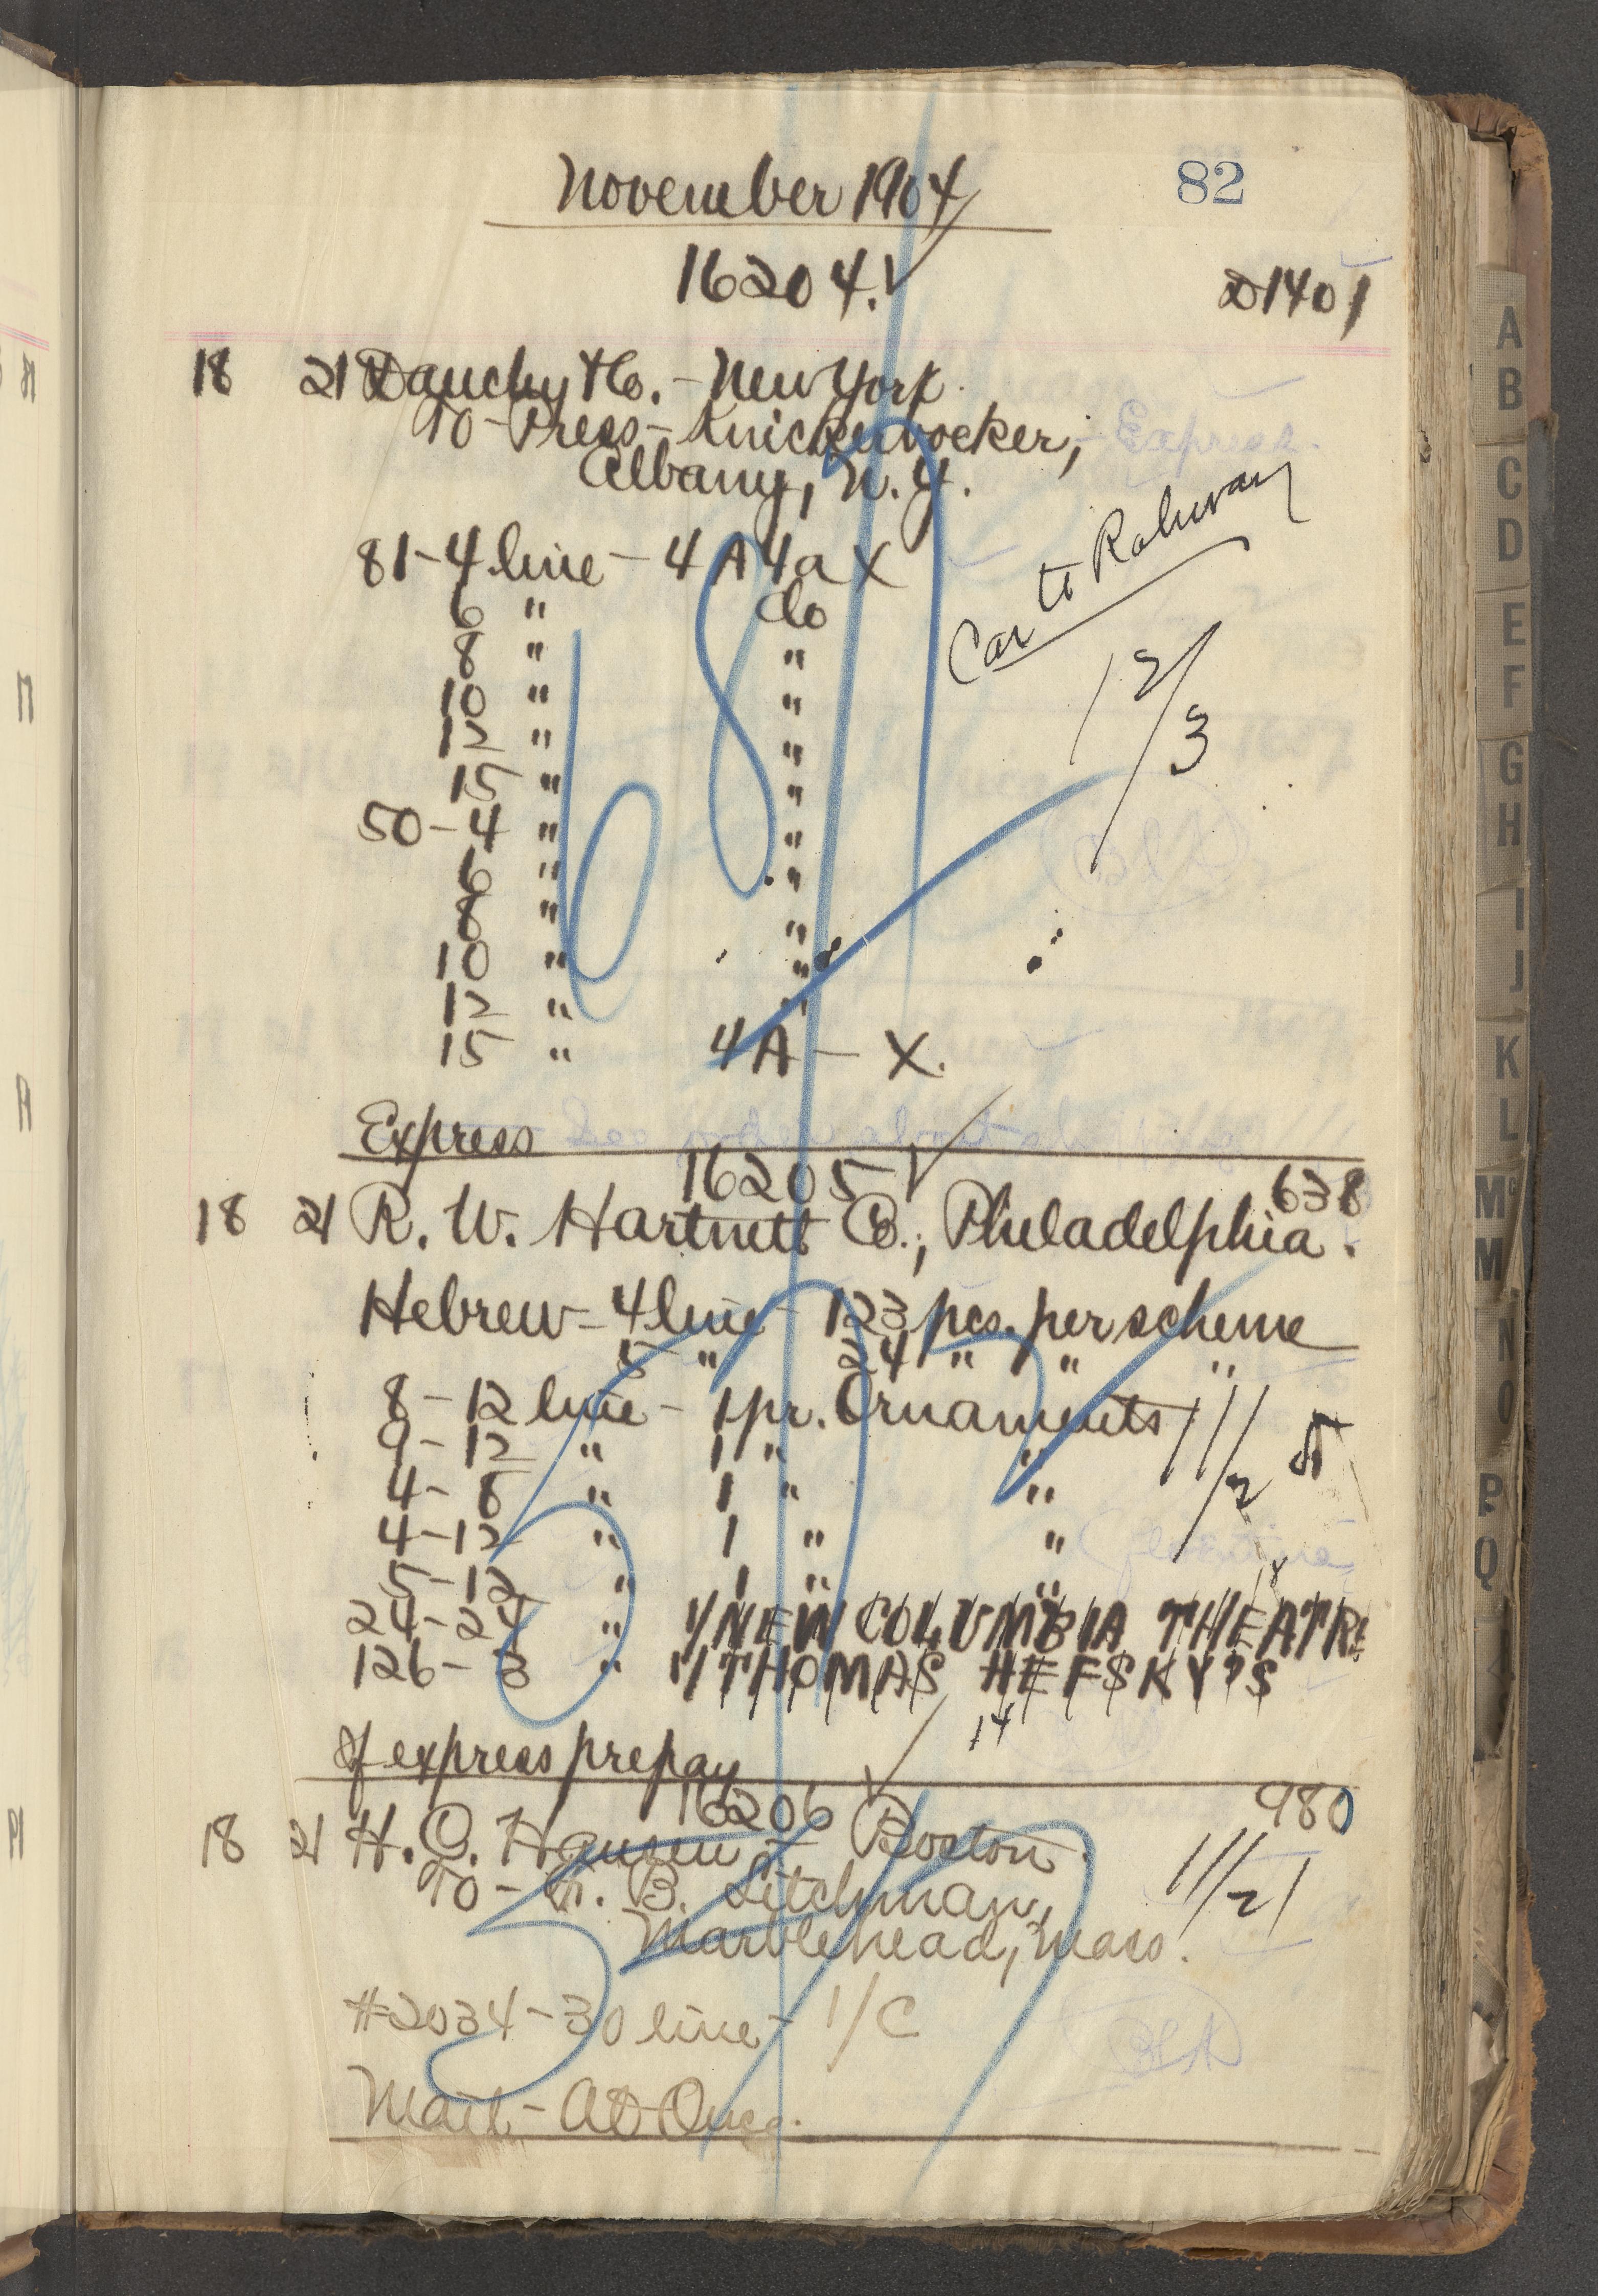 82
November 1904
16204. √
D1401
18 21 Dauchy & Co. - New York.
To - Press - Knickerbocker,
Albany, N.Y.
81 - 4 line - 4A 4a X
6 " do
8 " "
10 " "
12 " "
15 " "
50 - 4 " "
6 " "
8 " "
10 " "
12 " "
15 " 4A - X.
Car to Rahway
12/3
Express
16205 √
638
18 21 R. W. Hartnett Co., Philadelphia.
Hebrew - 4 line - 123 pcs. per scheme
5 " 24 " " "
8 - 12 line - 1 pr. Ornaments
9 - 12 " 1 " "
4 - 8 " 1 " "
4 - 12 " 1 " "
5 - 12 " 1 " "
11/25
18
24 - 24 " 1/ NEW COLUMBIA THEATRE
126 - 8 " 1/ THOMAS HEFSKY'S
14
If express prepay
16206 √
980
18 21 H. C. Hansen - Boston.
To - F. B. Litchman,
Marblehead, Mass.
11/21
#2034 - 30 line - 1/C
Mail - At Once.
A
B
C
D
E
F
G
H
I
J
K
L
Mc
M
N
O
P
Q